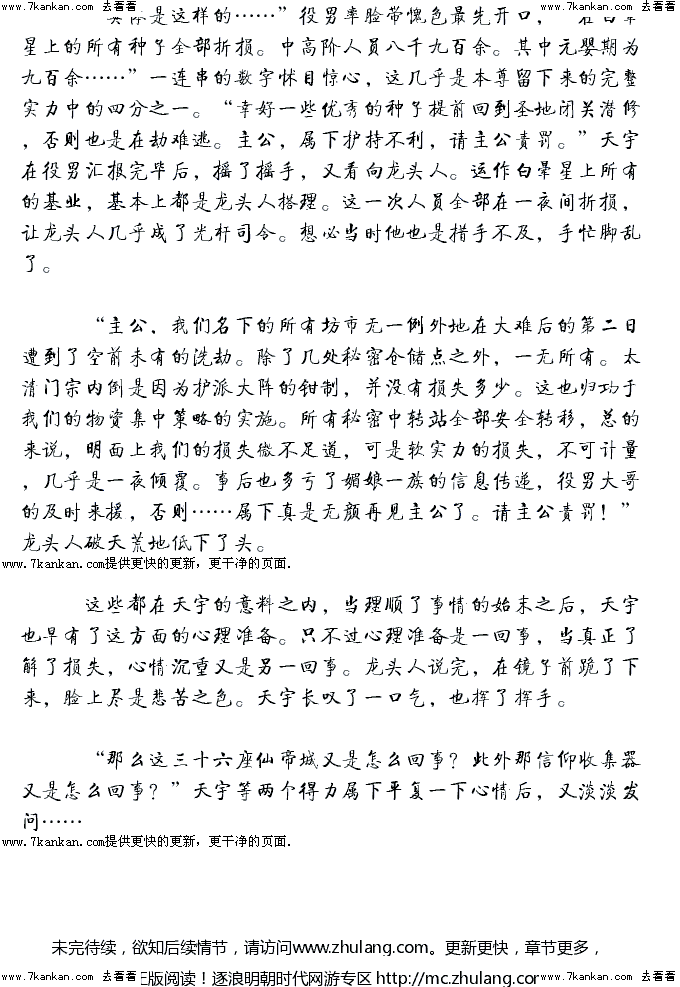 www.7kankan.com 去看看 www.7kankan.com 去看看
是这样的……”役男率脸带愧色最先开口，“在白晕
星上的所有种子全部折损。中高阶人员八千九百余。其中元婴期为
九百余……”一连串的数字怵目惊心，这几乎是本尊留下来的完整
实力中的四分之一。“幸好一些优秀的种子提前回到圣地闭关潜修
，否则也是在劫难逃。主公，属下护持不利，请主公责罚。”天宇
在役男汇报完毕后，摇了摇手，又看向龙头人。运作白晕星上所有
的基业，基本上都是龙头人搭理。这一次人员全部在一夜间折损，
让龙头人几乎成了光杆司令。想必当时他也是措手不及，手忙脚乱
了。
“主公，我们名下的所有坊市无一例外地在大难后的第二日
遭到了空前未有的洗劫。除了几处秘密仓储点之外，一无所有。太
清门宗内倒是因为护派大阵的钳制，并没有损失多少。这也归功于
我们的物资集中策略的实施。所有秘密中转站全部安全转移，总的
来说，明面上我们的损失微不足道，可是软实力的损失，不可计量
，几乎是一夜倾覆。事后也多亏了媚娘一族的信息传递，役男大哥
的及时来援，否则……属下真是无颜再见主公了。请主公责罚！”
龙头人破天荒地低下了头。
www.7kankan.com提供更快的更新，更干净的页面.
这些都在天宇的意料之内，当理顺了事情的始末之后，天宇
也早有了这方面的心理准备。只不过心理准备是一回事，当真正了
解了损失，心情沉重又是另一回事。龙头人说完，在镜子前跪了下
来，脸上尽是悲苦之色。天宇长叹了一口气，也挥了挥手。
“那么这三十六座仙帝城又是怎么回事？此外那信仰收集器
又是怎么回事？”天宇等两个得力属下平复一下心情后，又淡淡发
问……
www.7kankan.com提供更快的更新，更干净的页面.
未完待续，欲知后续情节，请访问www.zhulang.com。更新更快，章节更多，
www.7kankan.com 去看看 正版阅读！逐浪明朝时代网游专区 http://mc.zhulang.com www.7kankan.com 去看看